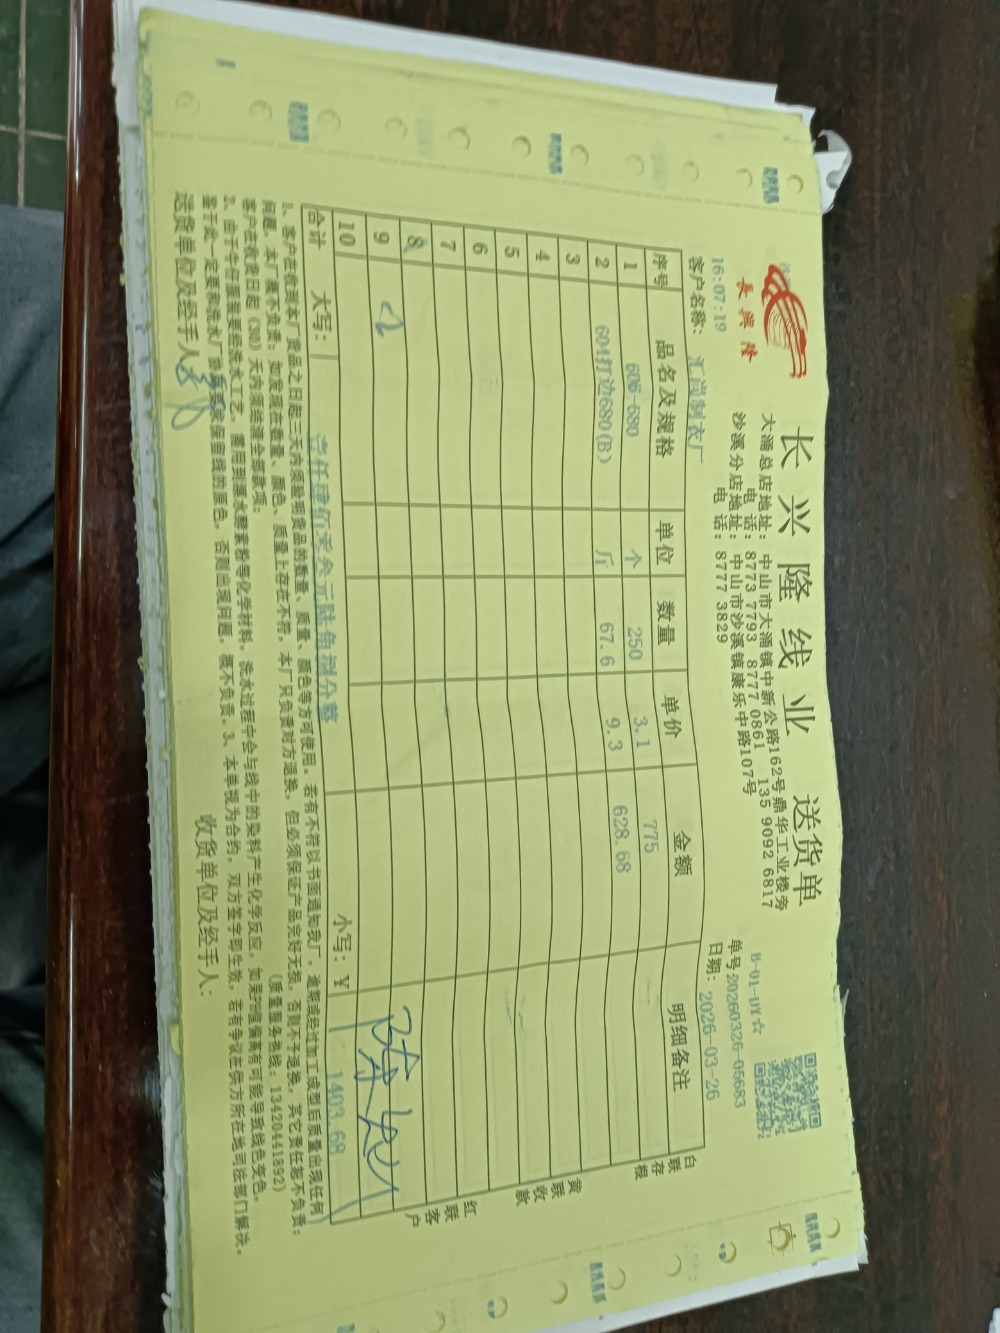 長興隆
长兴隆线业 送货单
大涌总店地址：中山市大涌镇中新公路162号鼎华工业楼旁
电话：8773 7793 8777 0861 135 9092 6817
沙溪分店地址：中山市沙溪镇康乐中路107号
电话：8777 3829
B-01-DY☆
16:07:19
单号 20260326-05683
客户名称：汇尚制衣厂
日期：2026-03-26
序号 品名及规格 单位 数量 单价 金额 明细备注
1 606-680 个 250 3.1 775
2 604打边680(B) 斤 67.6 9.3 628.68
3
4
5
6
7
8
9
10
合计 大写：壹仟肆佰零叁元陆角捌分整 小写：¥ 1403.68
白联存根
黄联收款
红联客户
1、客户在收到本厂货品之日起三天内须验明货品的数量、质量、颜色等方可使用。若有不符以书面通知我厂，逾期或经过加工成型后质量出现任何
问题，本厂概不负责；如发现在数量、颜色、质量上存在不符，本厂只负责对方退换，但必须保证产品完好无损，否则不予退换，其它责任恕不负责；
客户在收货日起(30)天内须结清全部款项； (质量服务热线：13420441892)
2、由于牛仔服装要经洗水工艺，需用到漂水酵素粉等化学材料，洗水过程中会与线中的染料产生化学反应，如果PH值偏高有可能导致线色变色，
鉴于此一定要和洗水厂协商要求保留线的原色，否则出现问题，概不负责。3、本单视为合约，双方签字即生效，若有争议在供方所在地司法部门解决。
送货单位及经手人： 收货单位及经手人：